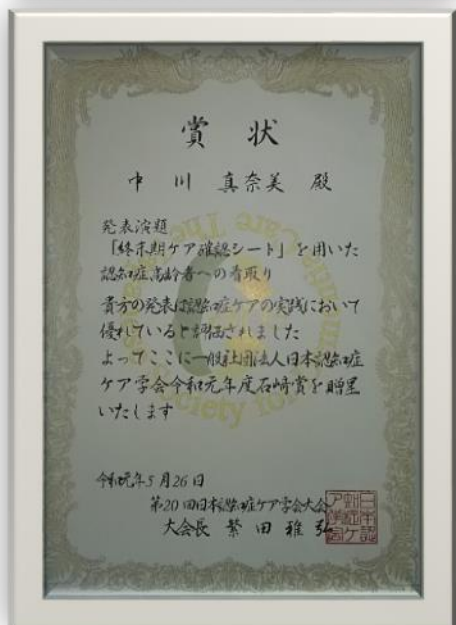 賞状
中川 真奈美 殿
発表演題
「終末期ケア確認シート」を用いた
認知症高齢者への看取り
貴方の発表は認知症ケアの実践において
優れていると評価されました
よってここに一般社団法人日本認知症
ケア学会令和元年度石﨑賞を贈呈
いたします
令和元年5月26日
第20回日本認知症ケア学会大会
大会長 繁田雅弘